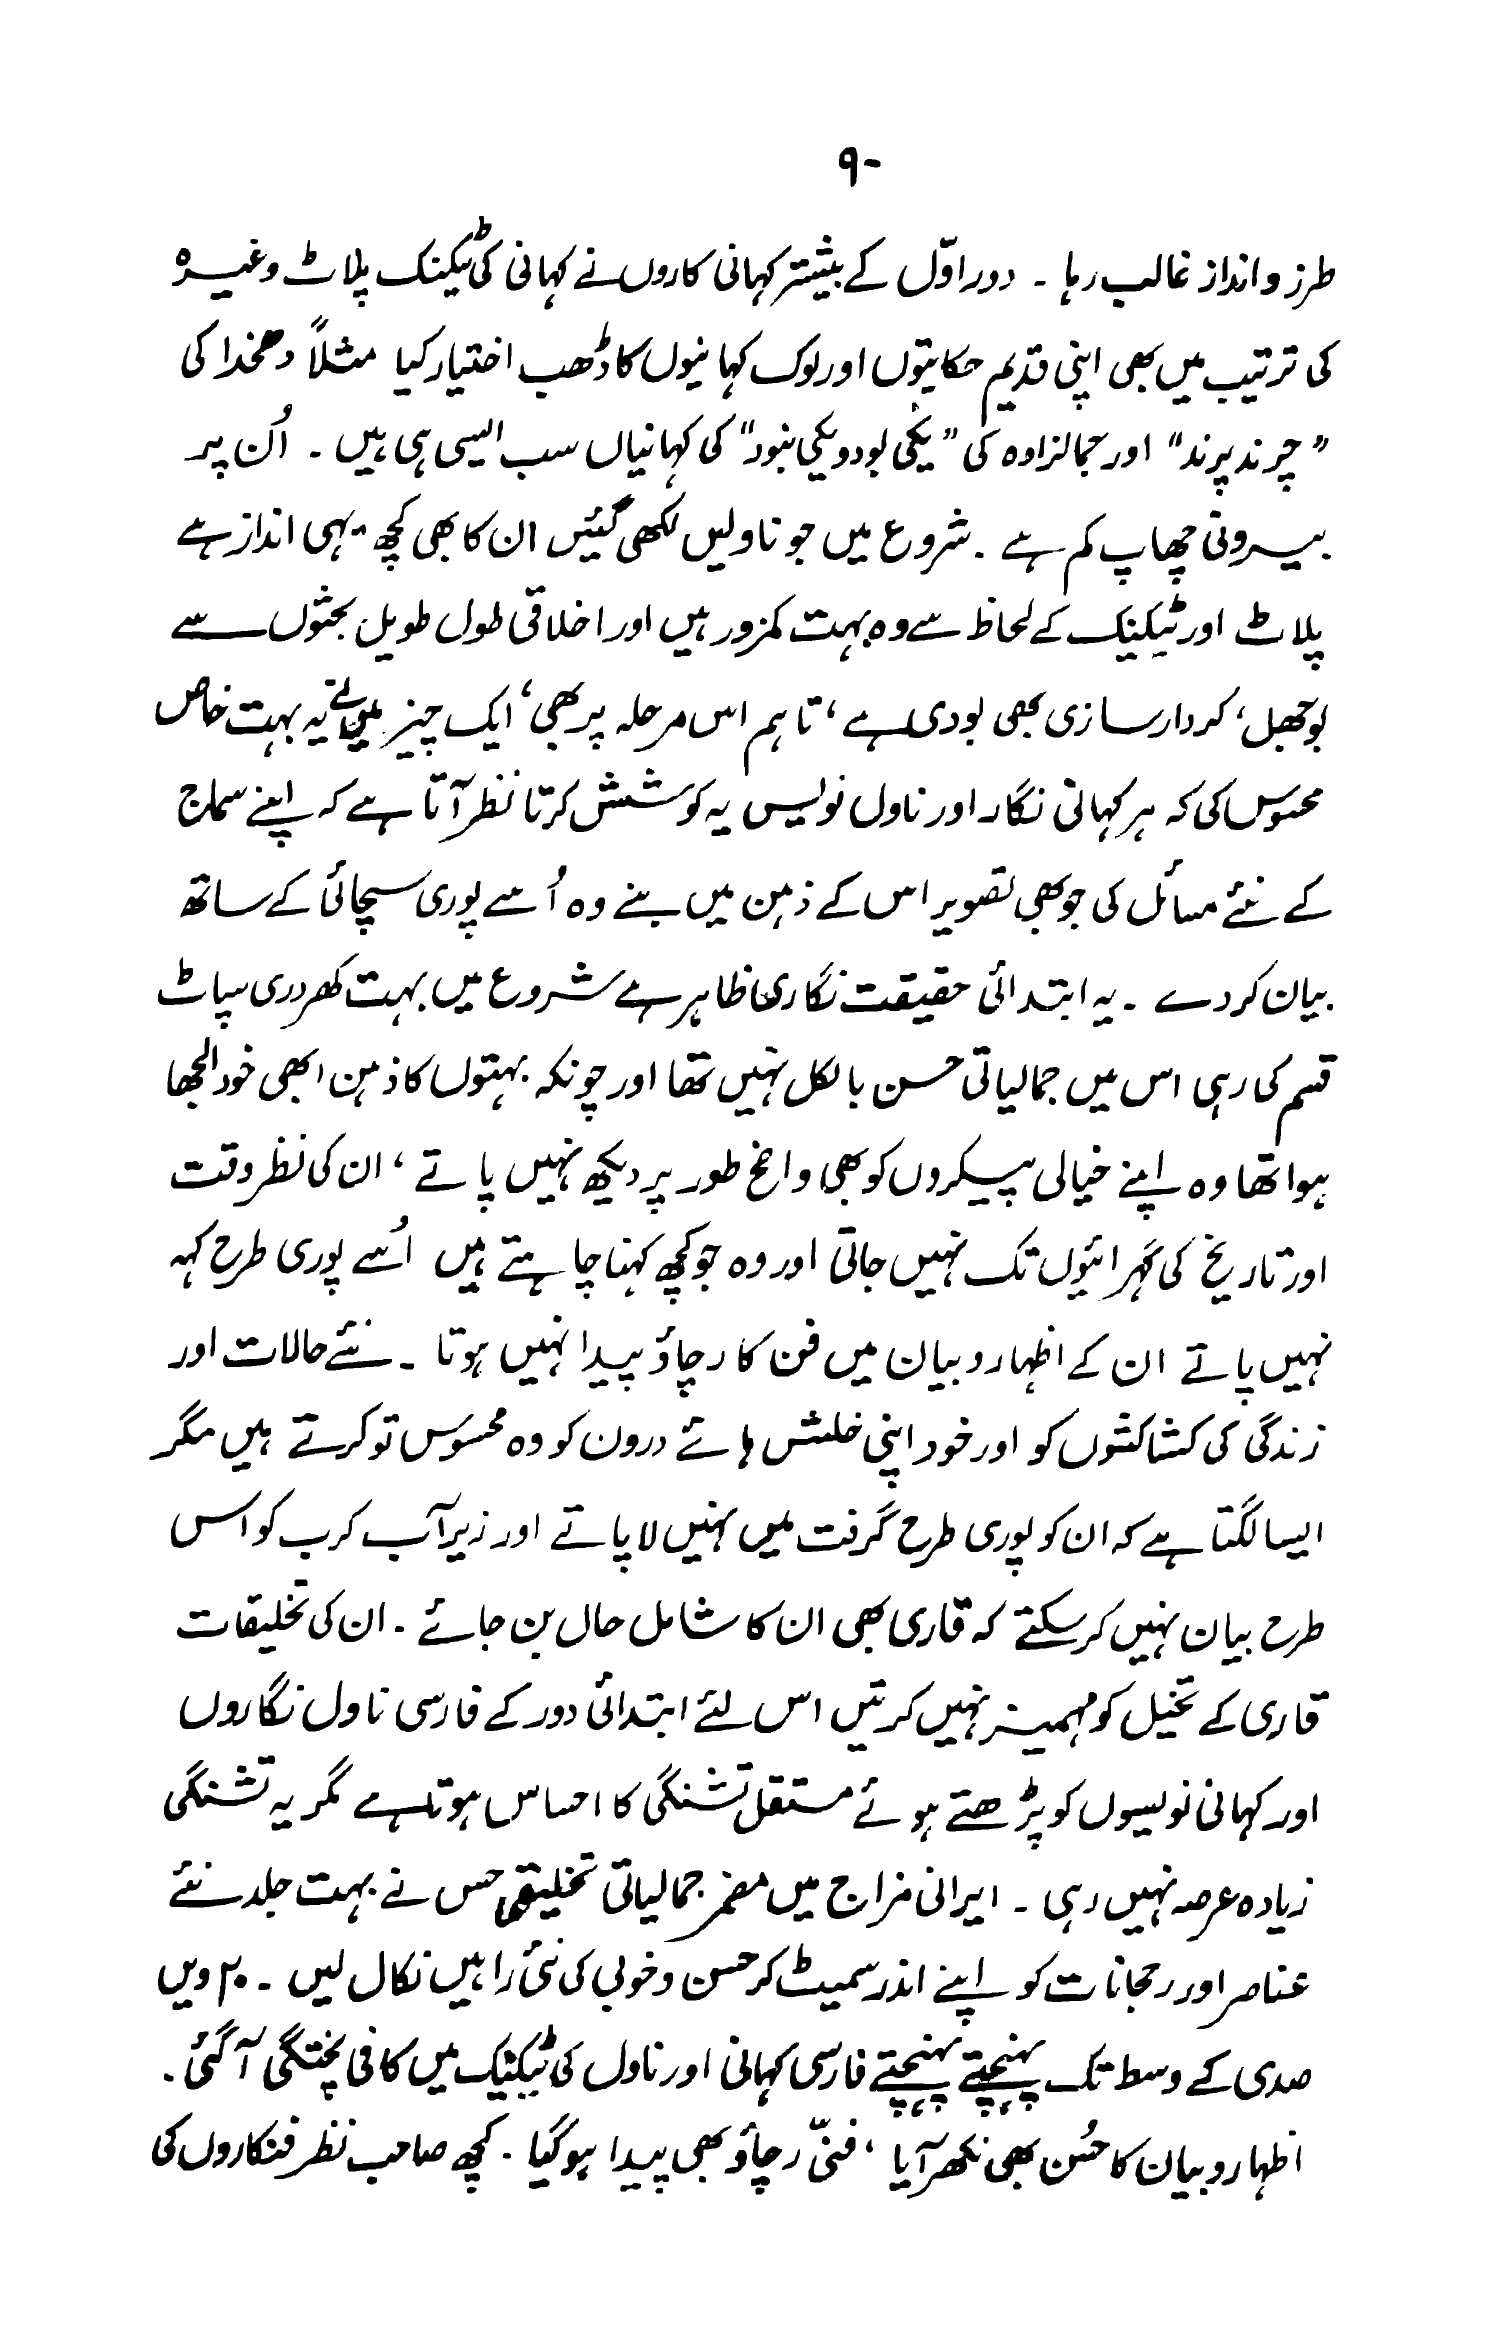 ۹-
طرز و انداز غالب رہا ۔ دور اوّل کے بیشتر کہانی کاروں نے کہانی کی ٹیکنک پلاٹ وغیرہ
کی ترتیب میں بھی اپنی قدیم حکایتوں اور لوک کہانیوں کا ڈھب اختیار کیا مثلاً دھخدا کی
” چرند پرند “ اور جمالزادہ کی ” یکی بود و یکی نبود “ کی کہانیاں سب ایسی ہی ہیں ۔ اُن پر
بیرونی چھاپ کم ہے ۔ شروع میں جو ناولیں لکھی گئیں ان کا بھی کچھ یہی انداز ہے
پلاٹ اور ٹیکنیک کے لحاظ سے وہ بہت کمزور ہیں اور اخلاقی طول طویل بحثوں سے
بوجھل ، کردار سازی بھی بودی ہے ، تاہم اس مرحلہ پر بھی ، ایک چیز میں نے یہ بہت خاص
محسوس کی کہ ہر کہانی نگار اور ناول نویس یہ کوشش کرتا نظر آتا ہے کہ اپنے سماج
کے نئے مسائل کی جو بھی تصویر اس کے ذہن میں بنے وہ اُسے پوری سچائی کے ساتھ
بیان کر دے ۔ یہ ابتدائی حقیقت نگاری ظاہر ہے شروع میں بہت کھردری سپاٹ
قسم کی رہی اس میں جمالیاتی حسن بالکل نہیں تھا اور چونکہ بہتوں کا ذہن ابھی خود الجھا
ہوا تھا وہ اپنے خیالی پیکروں کو بھی واضح طور پر دیکھ نہیں پاتے ، ان کی نظر وقت
اور تاریخ کی گہرائیوں تک نہیں جاتی اور وہ جو کچھ کہنا چاہتے ہیں اُسے پوری طرح کہہ
نہیں پاتے ان کے اظہار و بیان میں فن کا رچاؤ پیدا نہیں ہوتا ۔ نئے حالات اور
زندگی کی کشاکشوں کو اور خود اپنی خلش ہائے درون کو وہ محسوس تو کرتے ہیں مگر
ایسا لگتا ہے کہ ان کو پوری طرح گرفت میں نہیں لا پاتے اور زیر آب کرب کو اس
طرح بیان نہیں کر سکتے کہ قاری بھی ان کا شامل حال بن جائے ۔ ان کی تخلیقات
قاری کے تخیل کو مہمیز نہیں کرتیں اس لئے ابتدائی دور کے فارسی ناول نگاروں
اور کہانی نویسوں کو پڑھتے ہوئے مستقل تشنگی کا احساس ہوتا ہے مگر یہ تشنگی
زیادہ عرصہ نہیں رہی ۔ ایرانی مزاج میں مضمر جمالیاتی تخلیقی حس نے بہت جلد نئے
عناصر اور رحجانات کو اپنے اندر سمیٹ کر حسن و خوبی کی نئی راہیں نکال لیں ۔ ۲۰ ویں
صدی کے وسط تک پہنچتے پہنچتے فارسی کہانی اور ناول کی ٹیکنیک میں کافی پختگی آ گئی ۔
اظہار و بیان کا حُسن بھی نکھر آیا ، فنّی رچاؤ بھی پیدا ہو گیا ۔ کچھ صاحب نظر فنکاروں کی